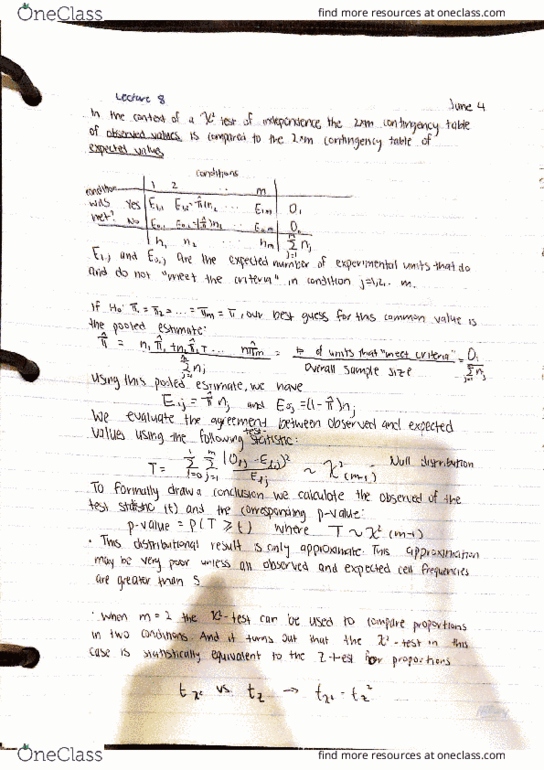 OneClass
find more resources at oneclass.com
Lecture 8
June 4
In the context of a χ² test of independence the 2×m contingency table
of observed values is compared to the 2×m contingency table of
expected values
conditions
condition 1 2 ... m
was Yes E1,1 E1,2=π̂n2 ... E1,m O1
met? No E0,1 E0,2=(1-π̂)n2 ... E0,m O0
n1 n2 ... nm Σ(j=1 to m) nj
E1,j and E0,j are the expected number of experimental units that do
and do not "meet the criteria" in condition j=1,2,.. m.
If H0: π1 = π2 = ... = πm = π, our best guess for this common value is
the pooled estimate:
π̂ = (n1π̂1 + n2π̂2 + ... nπ̂m) / Σ(j=1 to m) nj = # of units that "meet criteria" / Overall sample size = O1 / Σ(j=1 to m) nj
Using this pooled estimate, we have
E1,j = π̂nj and E0,j = (1-π̂)nj
We evaluate the agreement between observed and expected
values using the following test statistic:
T = Σ(l=0 to 1) Σ(j=1 to m) (Ol,j - El,j)² / El,j ~ χ²(m-1) Null distribution
To formally draw a conclusion we calculate the observed of the
test statistic (t) and the corresponding p-value:
p-value = P(T ≥ t) where T ~ χ²(m-1)
· This distributional result is only approximate. This approximation
may be very poor unless all observed and expected cell frequencies
are greater than 5
· When m = 2 the χ²-test can be used to compare proportions
in two conditions. And it turns out that the χ²-test in this
case is statistically equivalent to the Z-test for proportions
tχ² vs. tz → tχ² = tz²
OneClass
find more resources at oneclass.com